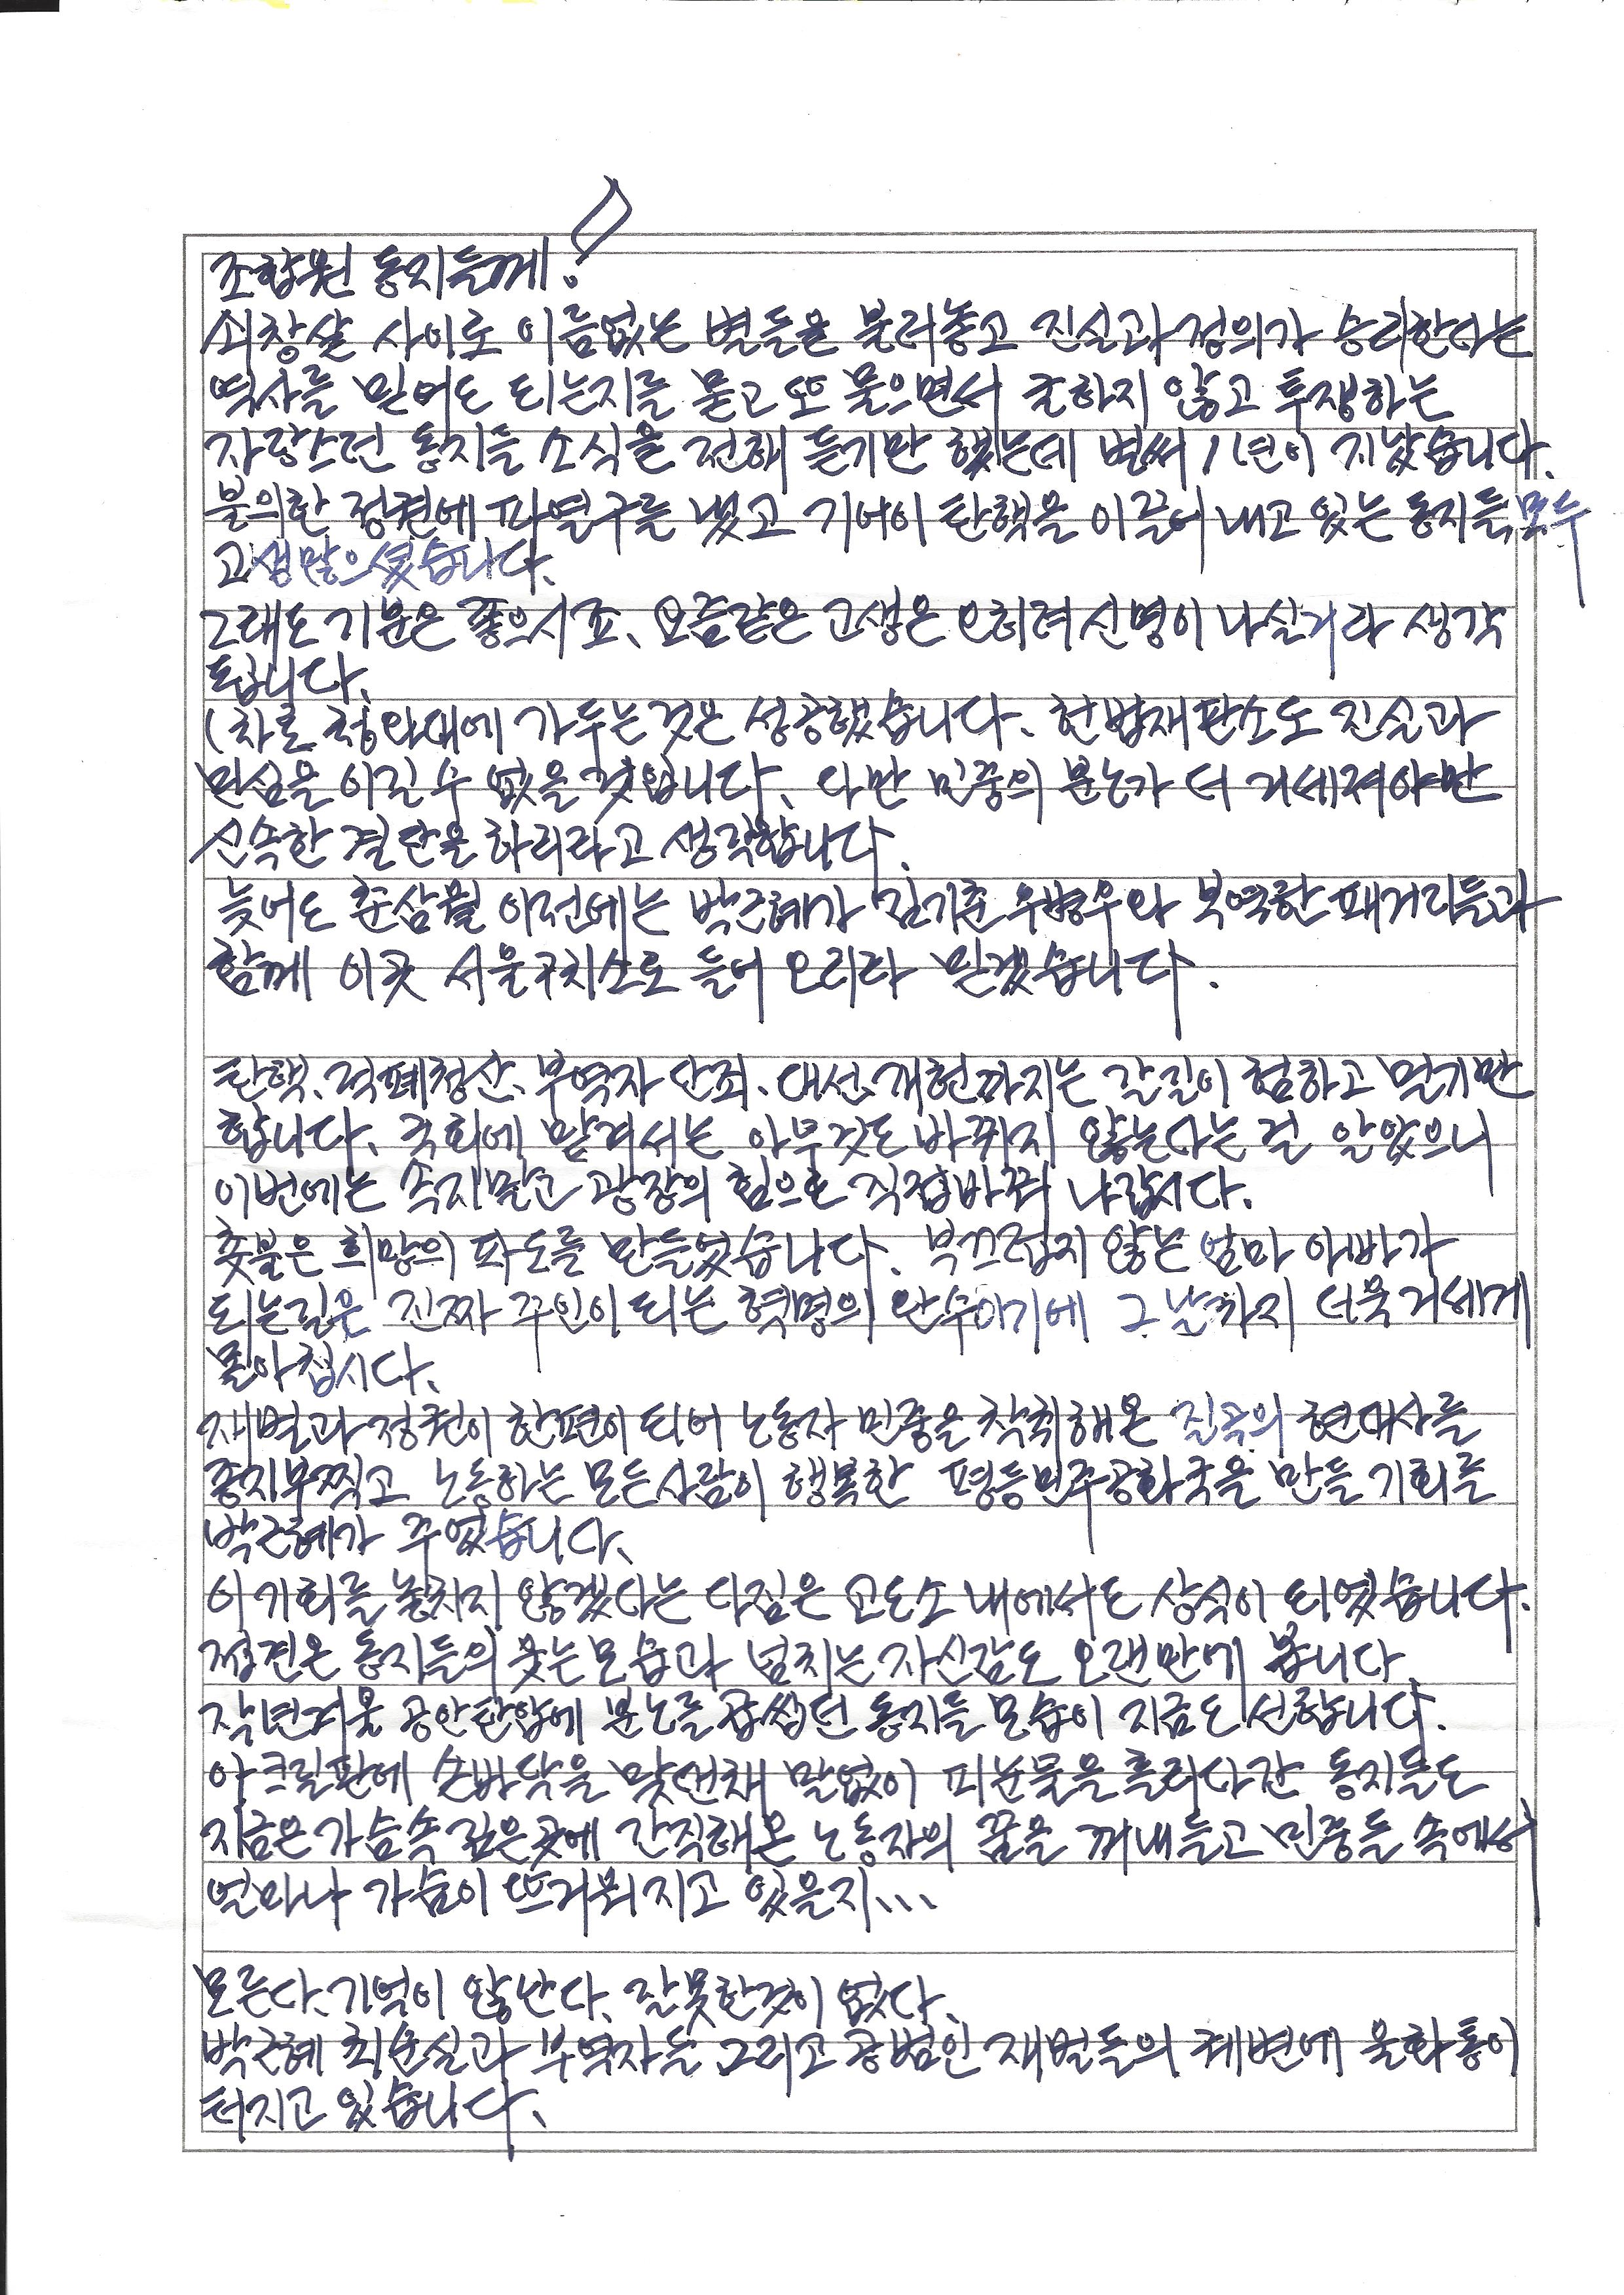 조합원 동지들께!
쇠창살 사이로 이름없는 별들을 불러놓고 진실과 정의가 승리한다는
역사를 믿어도 되는지를 묻고 또 물으면서 굴하지 않고 투쟁하는
자랑스런 동지들 소식을 전해 듣기만 했는데 벌써 1년이 지났습니다.
불의한 정권에 파열구를 냈고 기어이 탄핵을 이끌어 내고 있는 동지들 모두
고생많으셨습니다.
그래도 기분은 좋으시죠. 요즘같은 고생은 오히려 신명이 나실거라 생각
됩니다.
1차로 청와대에 가두는것은 성공했습니다. 헌법재판소도 진실과
민심을 이길 수 없을 것입니다. 다만 민중의 분노가 더 거세져야만
신속한 결단을 하리라고 생각합니다.
늦어도 춘삼월 이전에는 박근혜가 김기춘 우병우와 부역한 패거리들과
함께 이곳 서울구치소로 들어 오리라 믿겠습니다.
탄핵, 적폐청산, 부역자 단죄, 대선, 개헌까지는 갈길이 험하고 멀기만
합니다. 국회에 맡겨서는 아무것도 바뀌지 않는다는 걸 알았으니
이번에는 속지말고 광장의 힘으로 직접바꿔 나갑시다.
촛불은 희망의 파도를 만들었습니다. 부끄럽지 않는 엄마 아빠가
되는길은 진짜 주인이 되는 혁명의 완수이기에 그 날까지 더욱 거세게
몰아칩시다.
재벌과 정권이 한편이 되어 노동자 민중을 착취해온 질곡의 현대사를
종지부찍고 노동하는 모든사람이 행복한 평등민주공화국을 만들 기회를
박근혜가 주었습니다.
이 기회를 놓치지 않겠다는 다짐은 교도소 내에서도 상식이 되었습니다.
접견온 동지들의 웃는모습과 넘치는 자신감도 오랜만에 봅니다.
작년겨울 공안탄압에 분노를 곱씹던 동지들 모습이 지금도 선합니다.
아크릴판에 손바닥을 맞댄채 말없이 피눈물을 흘리다간 동지들도
지금은 가슴속 깊은곳에 간직해온 노동자의 꿈을 꺼내들고 민중들 속에서
얼마나 가슴이 뜨거워지고 있을지...
모른다. 기억이 않난다. 잘못한것이 없다.
박근혜 최순실과 부역자들 그리고 공범인 재벌들의 궤변에 울화통이
터지고 있습니다.